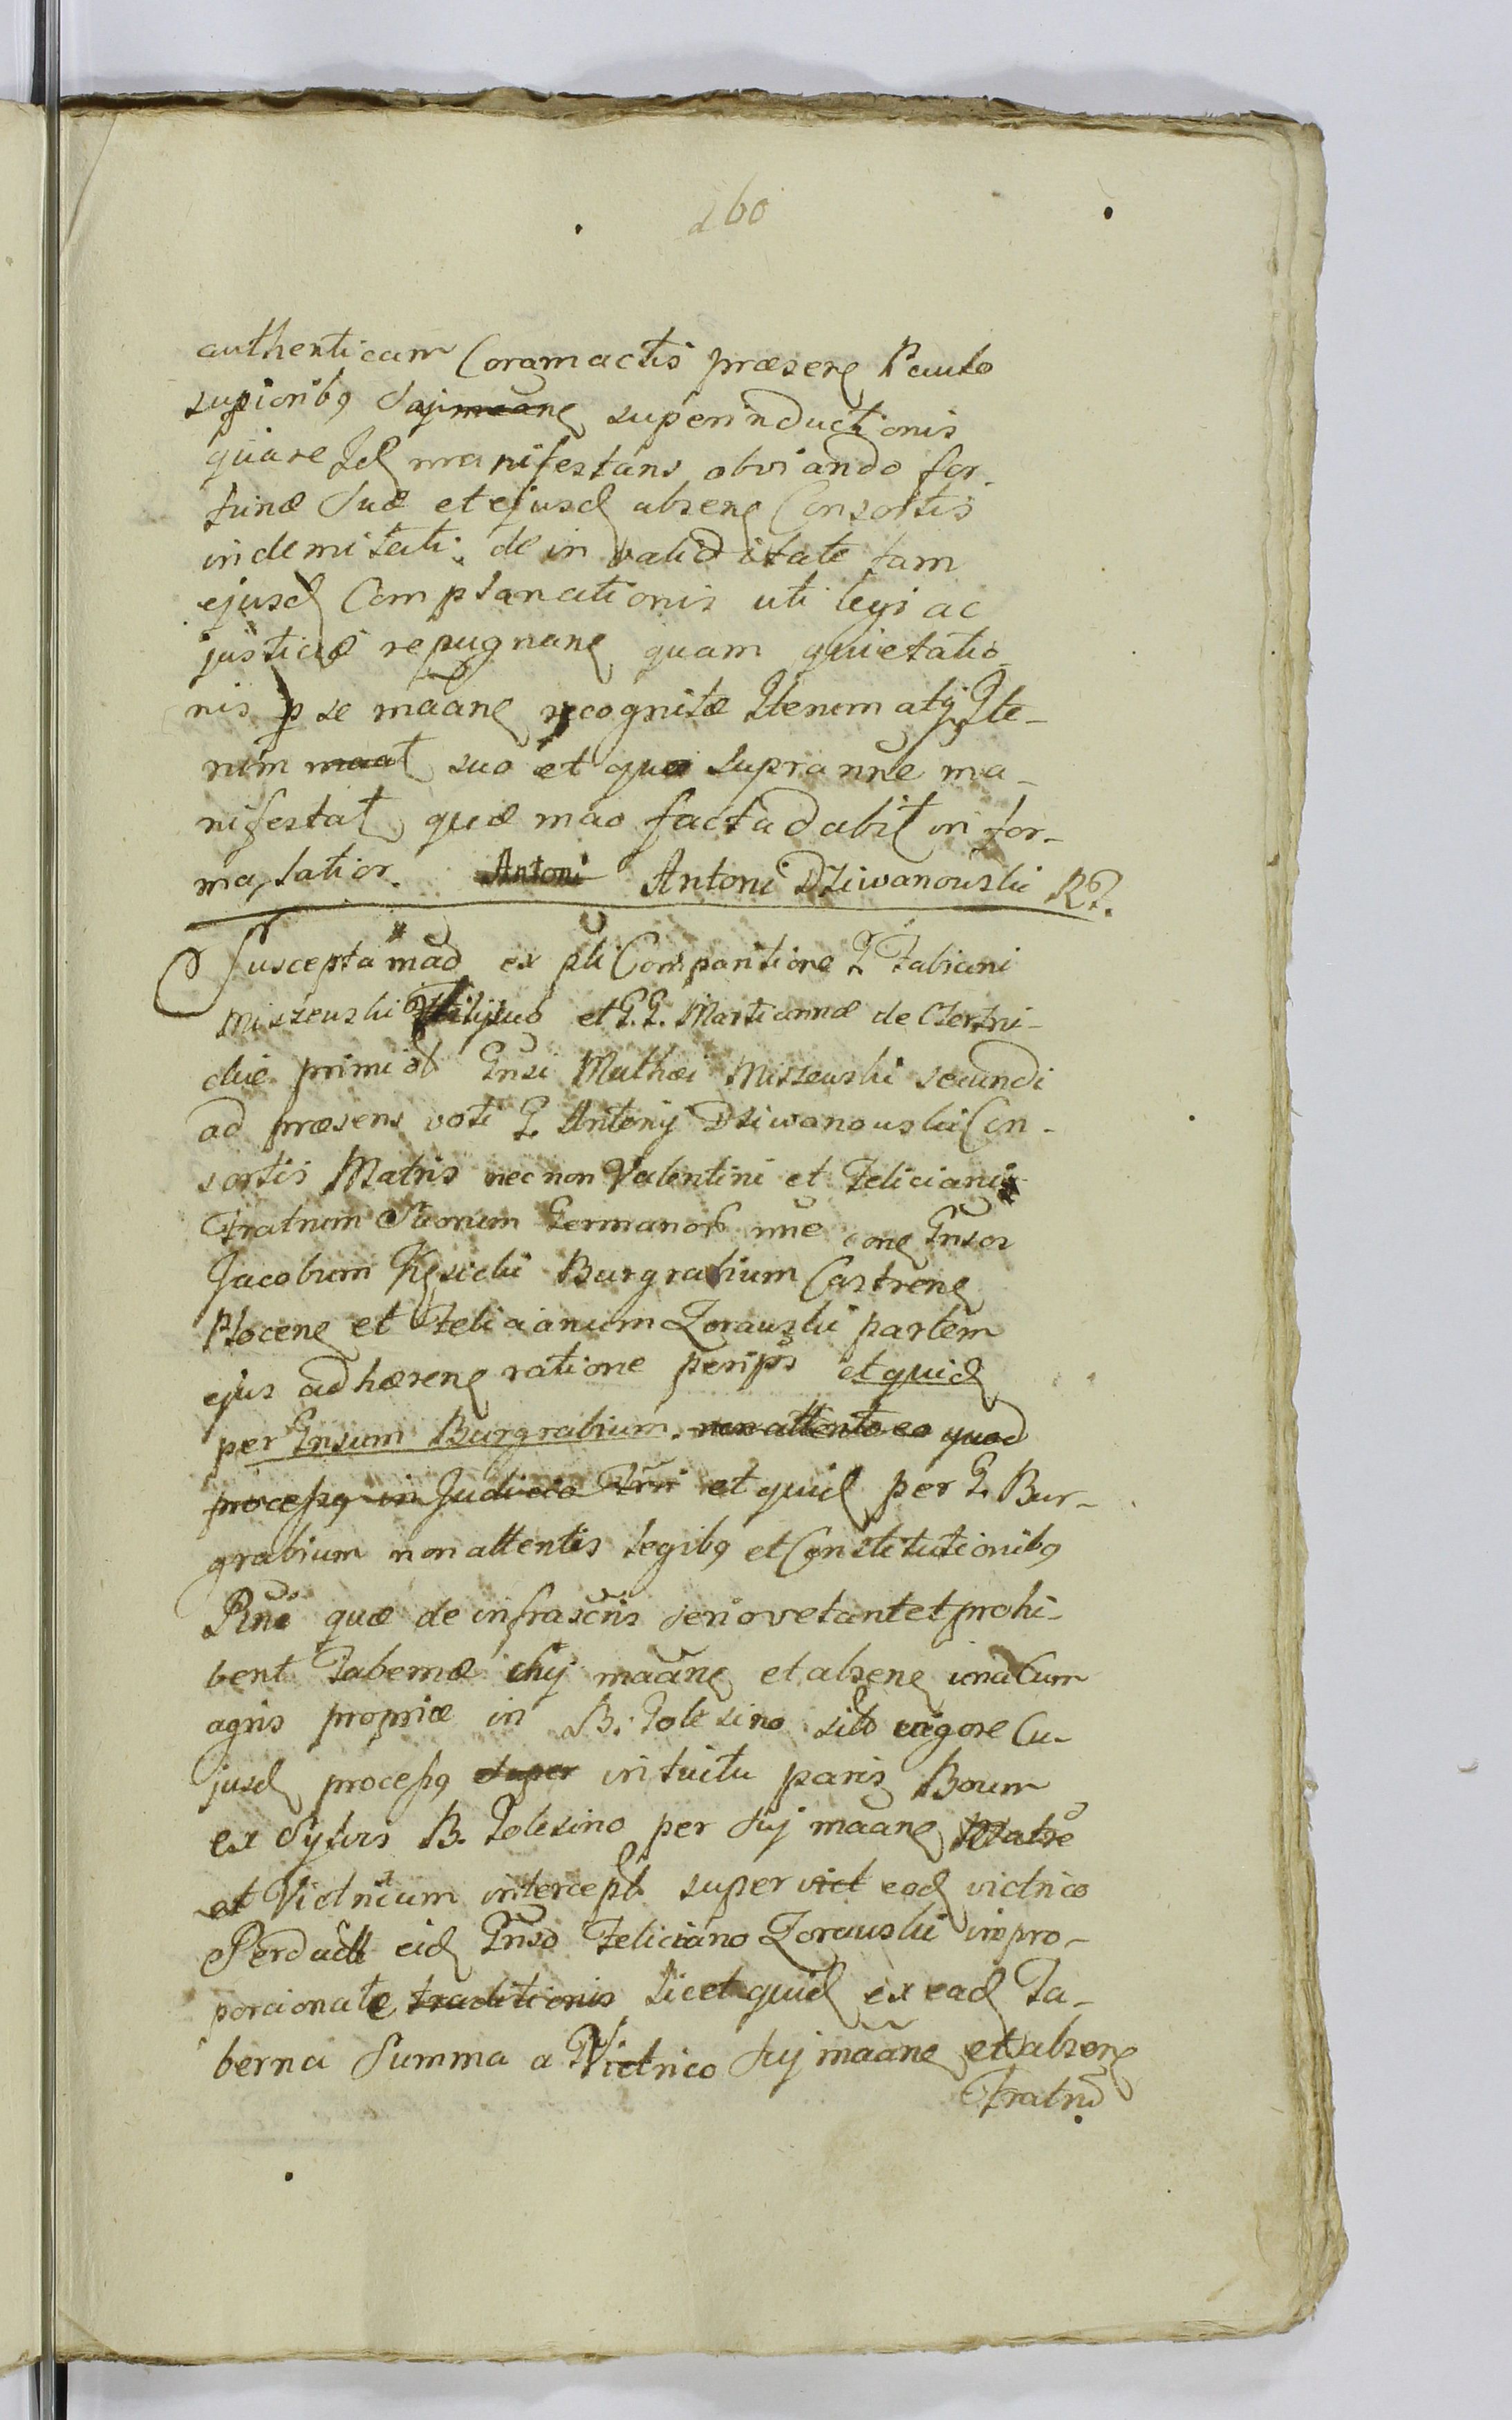 260
authenticam Coram actis præsen Paulo
supioribq Suj maane superinductionis
quare Id manifestans obviando for-
tunæ Suæ et ejusd absen Consortis
indemitati. de in validitate tam
ejusd Complanationis uti legi ac
justiciæ repugnan quam quietatio-
nis p se maane recognitæ Iterum atq Ite-
rum maat suo et quo supra nne ma-
nifestat quæ mao facta dabit in for-
ma latior. Antoni Antoni Dziwanowski RP.
Suscepta mad ex pti Comparitione G Fabiani
Miszewski Filij suo et G.G. Martiannæ de Czerni-
ckie primi ol Gnsi Mathæi Miszewski secundi
ad præsens voti G. Antonij Dziwanowski Con-
sortis Matris nec non Valentini et Feliciani
Fratrum Suorum Germanor nne one Gnsos
Jacobum Kęsicki Burgrabium Castren
Plocen et Felicianum Zorawski partem
ejus adhæren ratione perips et quid
per Gnsum Burgrabium. non attento eo quod
processq in Judicio Trri et quid per G. Bur-
grabium non attentis legibq et Constitutionibq
Rni quæ de infrascris serio vetant et prohi-
bent Tabernæ Suj maane et absen una Cum
agris propriæ in B. Golesino sit vigore Cu-
jusd processq super intuitu paris Boum
ex Sylvis B. Golesino per Suj maane Matre
et Vidtricum intercept super vict eod victrico
Perdadt eid Gnso Feliciano Zorawski inpro-
porcionate traditionis licet quid ex ead Ta-
berna Summa a Victrico Suj maane et absen
Fratru